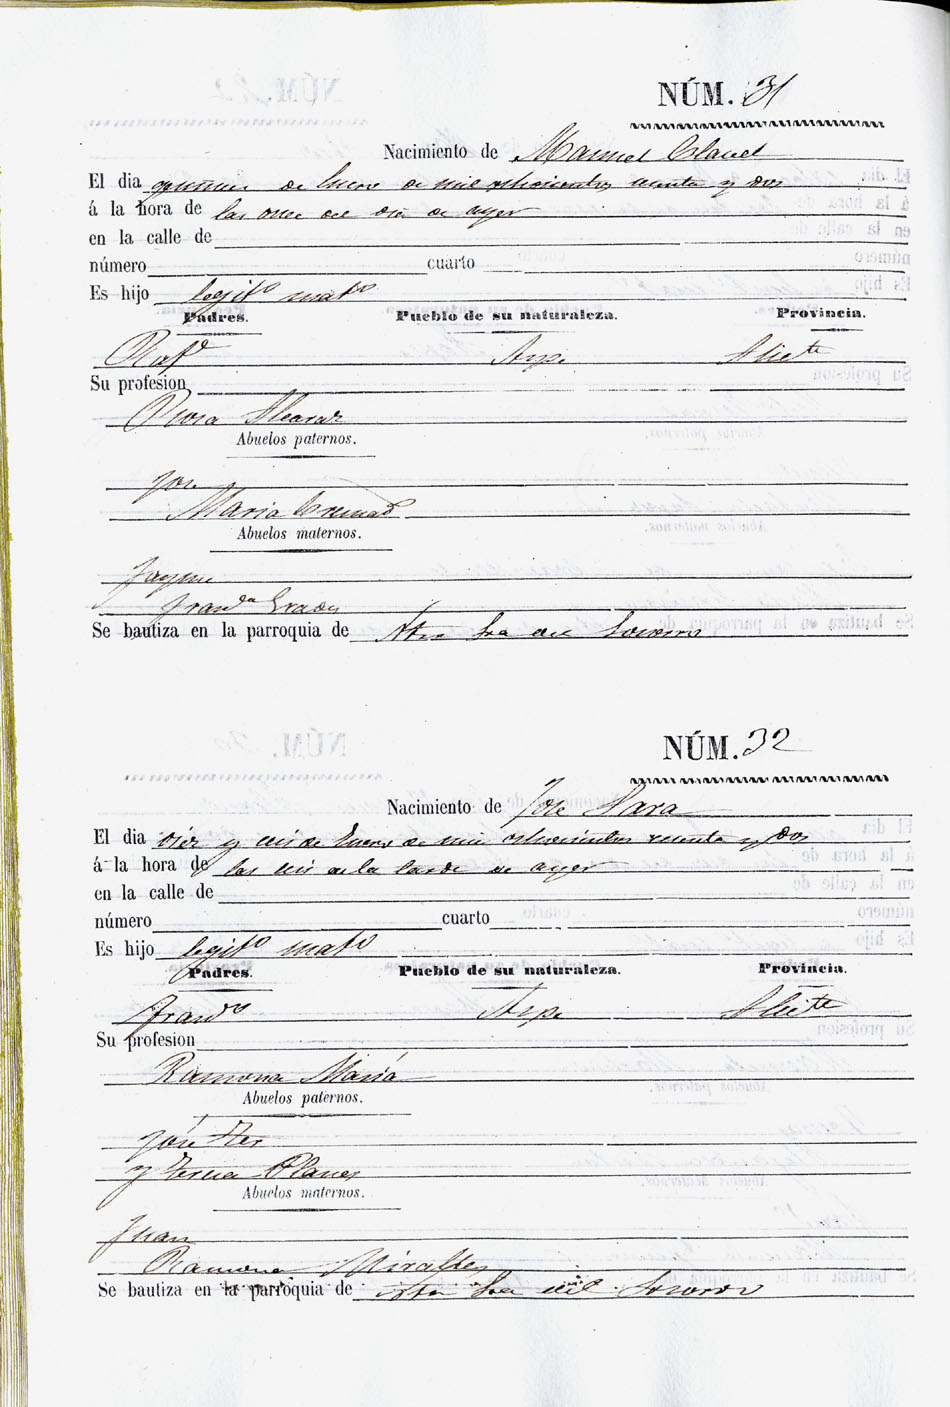 NÚM. 31
Nacimiento de Manuel
El dia quince de Enero de mil ochocientos setenta y dos
á la hora de las once del dia de ayer
en la calle de
número cuarto
Es hijo legit.º mat.º
Padres. Pueblo de su naturaleza. Provincia.
Raf.l Aspe Alic.te
Su profesion
Rosa Alcaraz
Abuelos paternos.
Jose
Maria Cremad.s
Abuelos maternos.
Jayme
Fran.ca
Se bautiza en la parroquia de Ntra Sra del Socorro
NÚM. 32
Nacimiento de Jose
El dia diez y seis de Enero de mil ochocientos setenta y dos
á la hora de las seis de la tarde de ayer
en la calle de
número cuarto
Es hijo legit.º mat.º
Padres. Pueblo de su naturaleza. Provincia.
Fran.co Aspe Alic.te
Su profesion
Ramona María
Abuelos paternos.
José
y Teresa Planes
Abuelos maternos.
Juan
Ramona Miralles
Se bautiza en la parroquia de Ntra Sra del Socorro